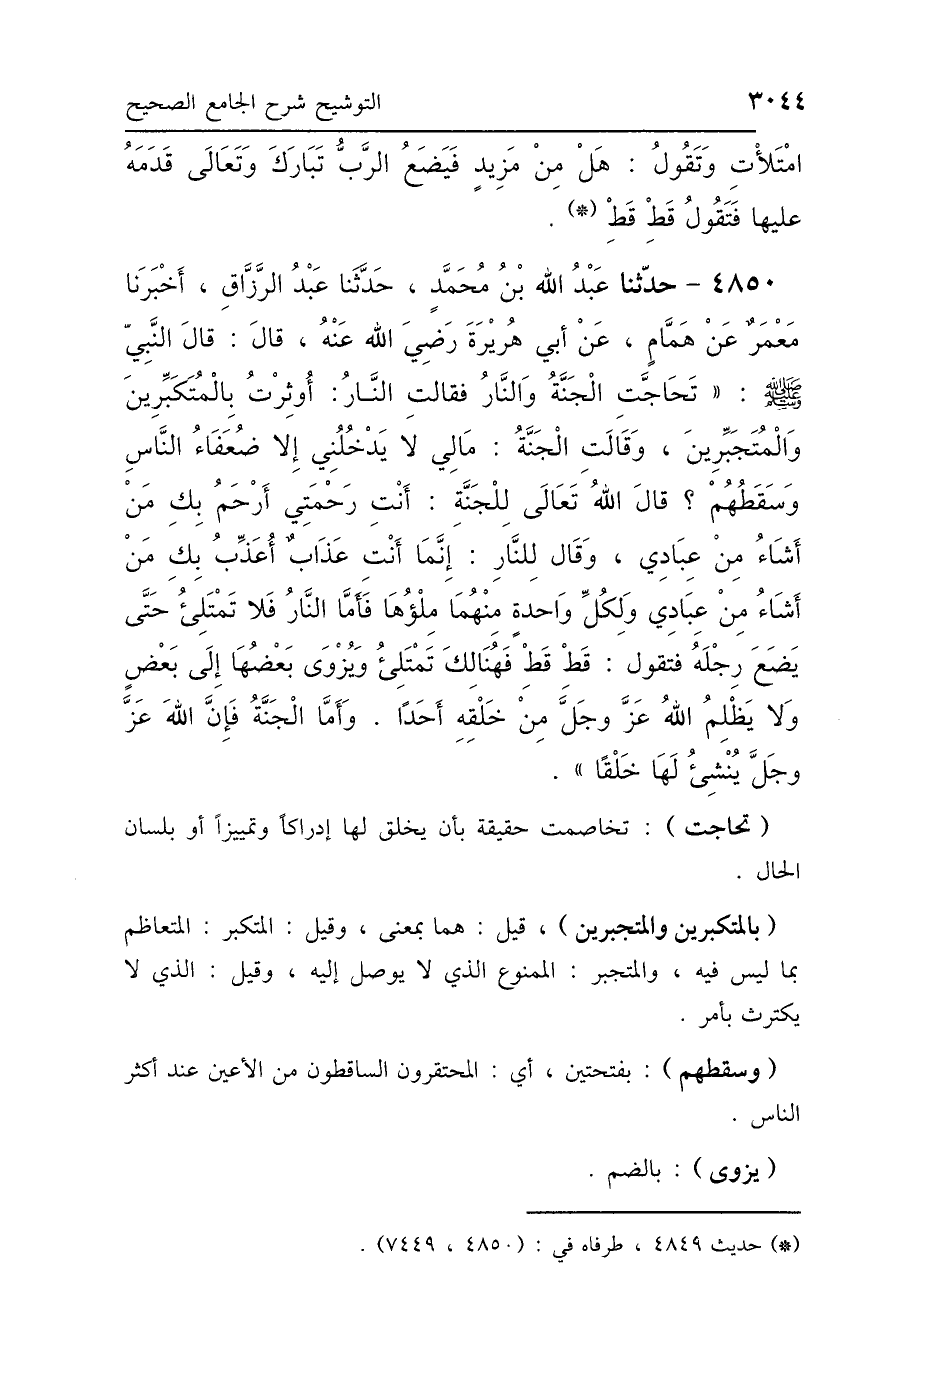 ٣٠٤٤ التوشيح شرح الجامع الصحيح
امْتَلأْتِ وَتَقُولُ : هَلْ مِنْ مَزِيدٍ فَيَضَعُ الرَّبُّ تَبَارَكَ وَتَعَالَى قَدَمَهُ
عليها فَتَقُولُ قَطْ قَطْ (*) .
٤٨٥٠ - حدّثنا عَبْدُ اللهِ بْنُ مُحَمَّدٍ ، حَدَّثَنا عَبْدُ الرَّزَّاقِ ، أَخْبَرَنا
مَعْمَرٌ عَنْ هَمَّامٍ ، عَنْ أبي هُرَيْرَةَ رَضِيَ الله عَنْهُ ، قالَ : قالَ النَّبِيّ
ﷺ : « تَحَاجَّتِ الْجَنَّةُ وَالنَّارُ فقالت النَّـارُ: أُوثِرْتُ بِالْمُتَكَبِّرِينَ
وَالْمُتَجَبِّرِينَ ، وَقَالَتِ الْجَنَّةُ : مَالِي لا يَدْخُلُنِي إلا ضُعَفَاءُ النَّاسِ
وَسَقَطُهُمْ ؟ قالَ اللهُ تَعَالَى لِلْجَنَّةِ : أَنْتِ رَحْمَتِي أَرْحَمُ بِكِ مَنْ
أَشَاءُ مِنْ عِبَادِي ، وَقَال لِلنَّارِ : إِنَّمَا أَنْتِ عَذَابٌ أُعَذِّبُ بِكِ مَنْ
أَشَاءُ مِنْ عِبَادِي وَلِكُلِّ وَاحِدةٍ مِنْهُمَا مِلْؤُهَا فَأَمَّا النَّارُ فَلا تَمْتَلِئُ حَتَّى
يَضَعَ رِجْلَهُ فتقول : قَطْ قَطْ فَهُنَالِكَ تَمْتَلِئُ وَيُزْوَى بَعْضُهَا إِلَى بَعْضٍ
وَلا يَظْلِمُ اللهُ عَزَّ وجَلَّ مِنْ خَلْقِهِ أَحَدًا . وَأَمَّا الْجَنَّةُ فَإِنَّ اللهَ عَزَّ
وجَلَّ يُنْشِئُ لَهَا خَلْقًا » .
( تحاجت ) : تخاصمت حقيقة بأن يخلق لها إدراكاً وتمييزاً أو بلسان
الحال .
( بالمتكبرين والمتجبرين ) ، قيل : هما بمعنى ، وقيل : المتكبر : المتعاظم
بما ليس فيه ، والمتجبر : الممنوع الذي لا يوصل إليه ، وقيل : الذي لا
يكترث بأمر .
( وسقطهم ) : بفتحتين ، أي : المحتقرون الساقطون من الأعين عند أكثر
الناس .
( يزوى ) : بالضم .
(*) حديث ٤٨٤٩ ، طرفاه في : (٤٨٥٠ ، ٧٤٤٩) .